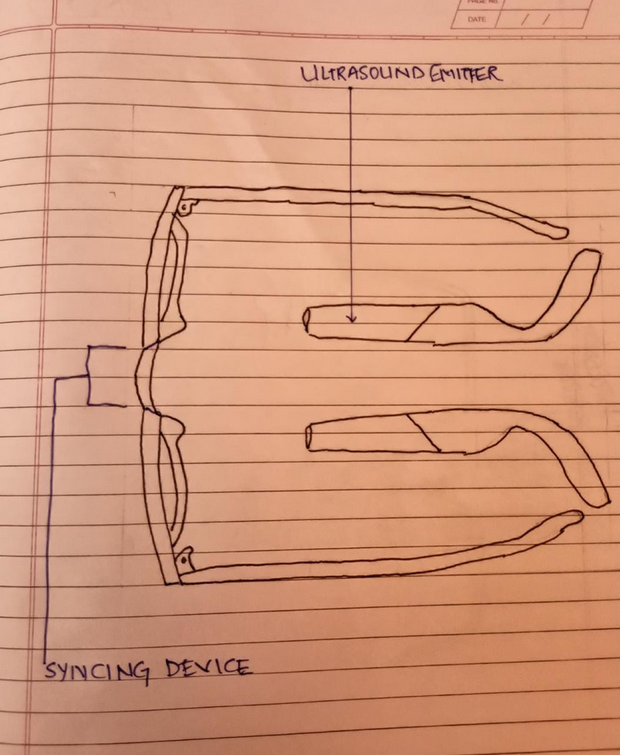 PAGE NO.
DATE
ULTRASOUND EMITTER
SYNCING DEVICE